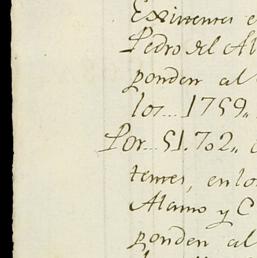 Existentes e
Pedro del Al
ponden al
los... 1759,,
Por... 51.702,,
temes, en lo
Alamo y C
ponden al